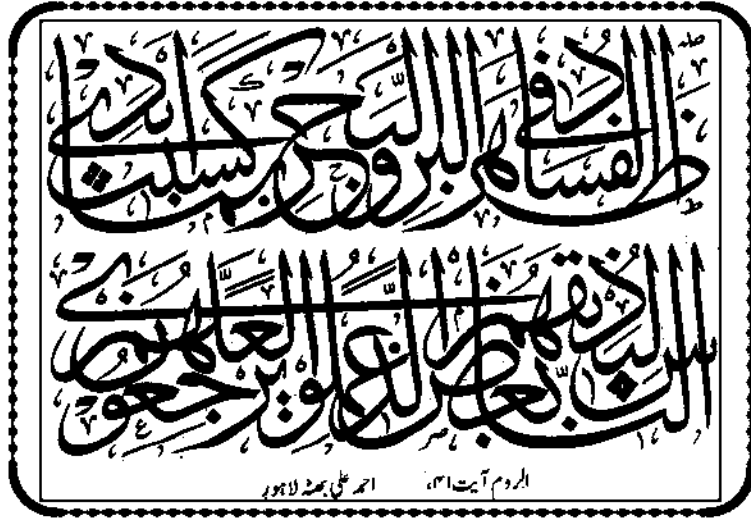 ظهر الفساد فی البر والبحر بما کسبت ایدی
الناس لیذیقهم بعض الذی عملوا لعلهم یرجعون
الروم آیت ۴۱، احمد علی بھٹہ لاہور